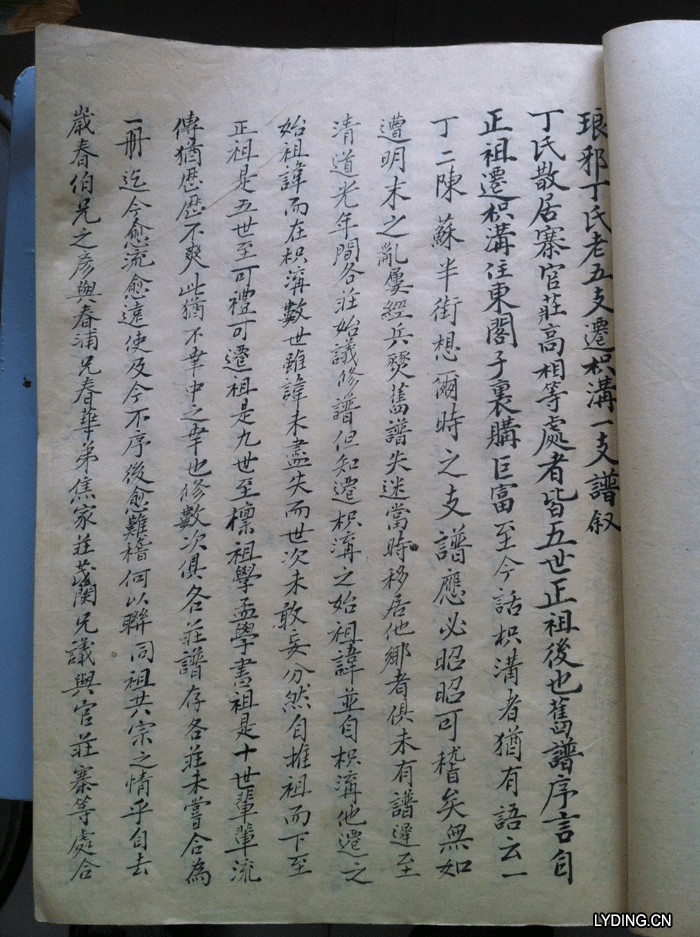 琅邪丁氏老五支遷枳溝一支譜叙
丁氏散居寨官莊高相等處者皆五世正祖後也舊譜序言自
正祖遷枳溝住東閣子裏購巨富至今話枳溝者猶有語云一
丁二陳蘇半街想爾時之支譜應必昭昭可稽矣無如
遭明末之亂屢經兵燹舊譜失迷當時移居他鄉者俱未有譜遲至
清道光年間各莊始議修譜但知遷枳溝之始祖諱並自枳溝他遷之
始祖諱而在枳溝數世雖諱未盡失而世次未敢妄分然自推祖而下至
正祖是五世至可禮可遷祖是九世至標祖學孟學書祖是十世輩輩流
傳猶歷歷不爽此猶不幸中之幸也修數次俱各莊譜存各莊未嘗合為
一冊迄今愈流愈遠使及今不序後愈難稽何以聯同祖共宗之情乎自去
歲春伯兄之彥與春浦兄春華弟焦家莊茂蘭兄議與官莊寨等處合
LYDING.CN